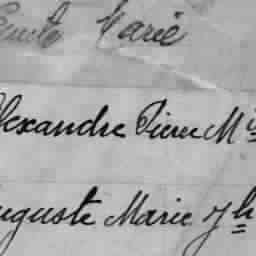 Marie
Alexandre Pierre M
Auguste Marie Jh